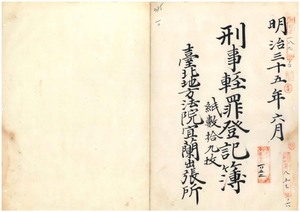 明治三十五年六月
刑事輕罪登記簿
紙數拾九枚
臺北地方法院宜蘭出張所